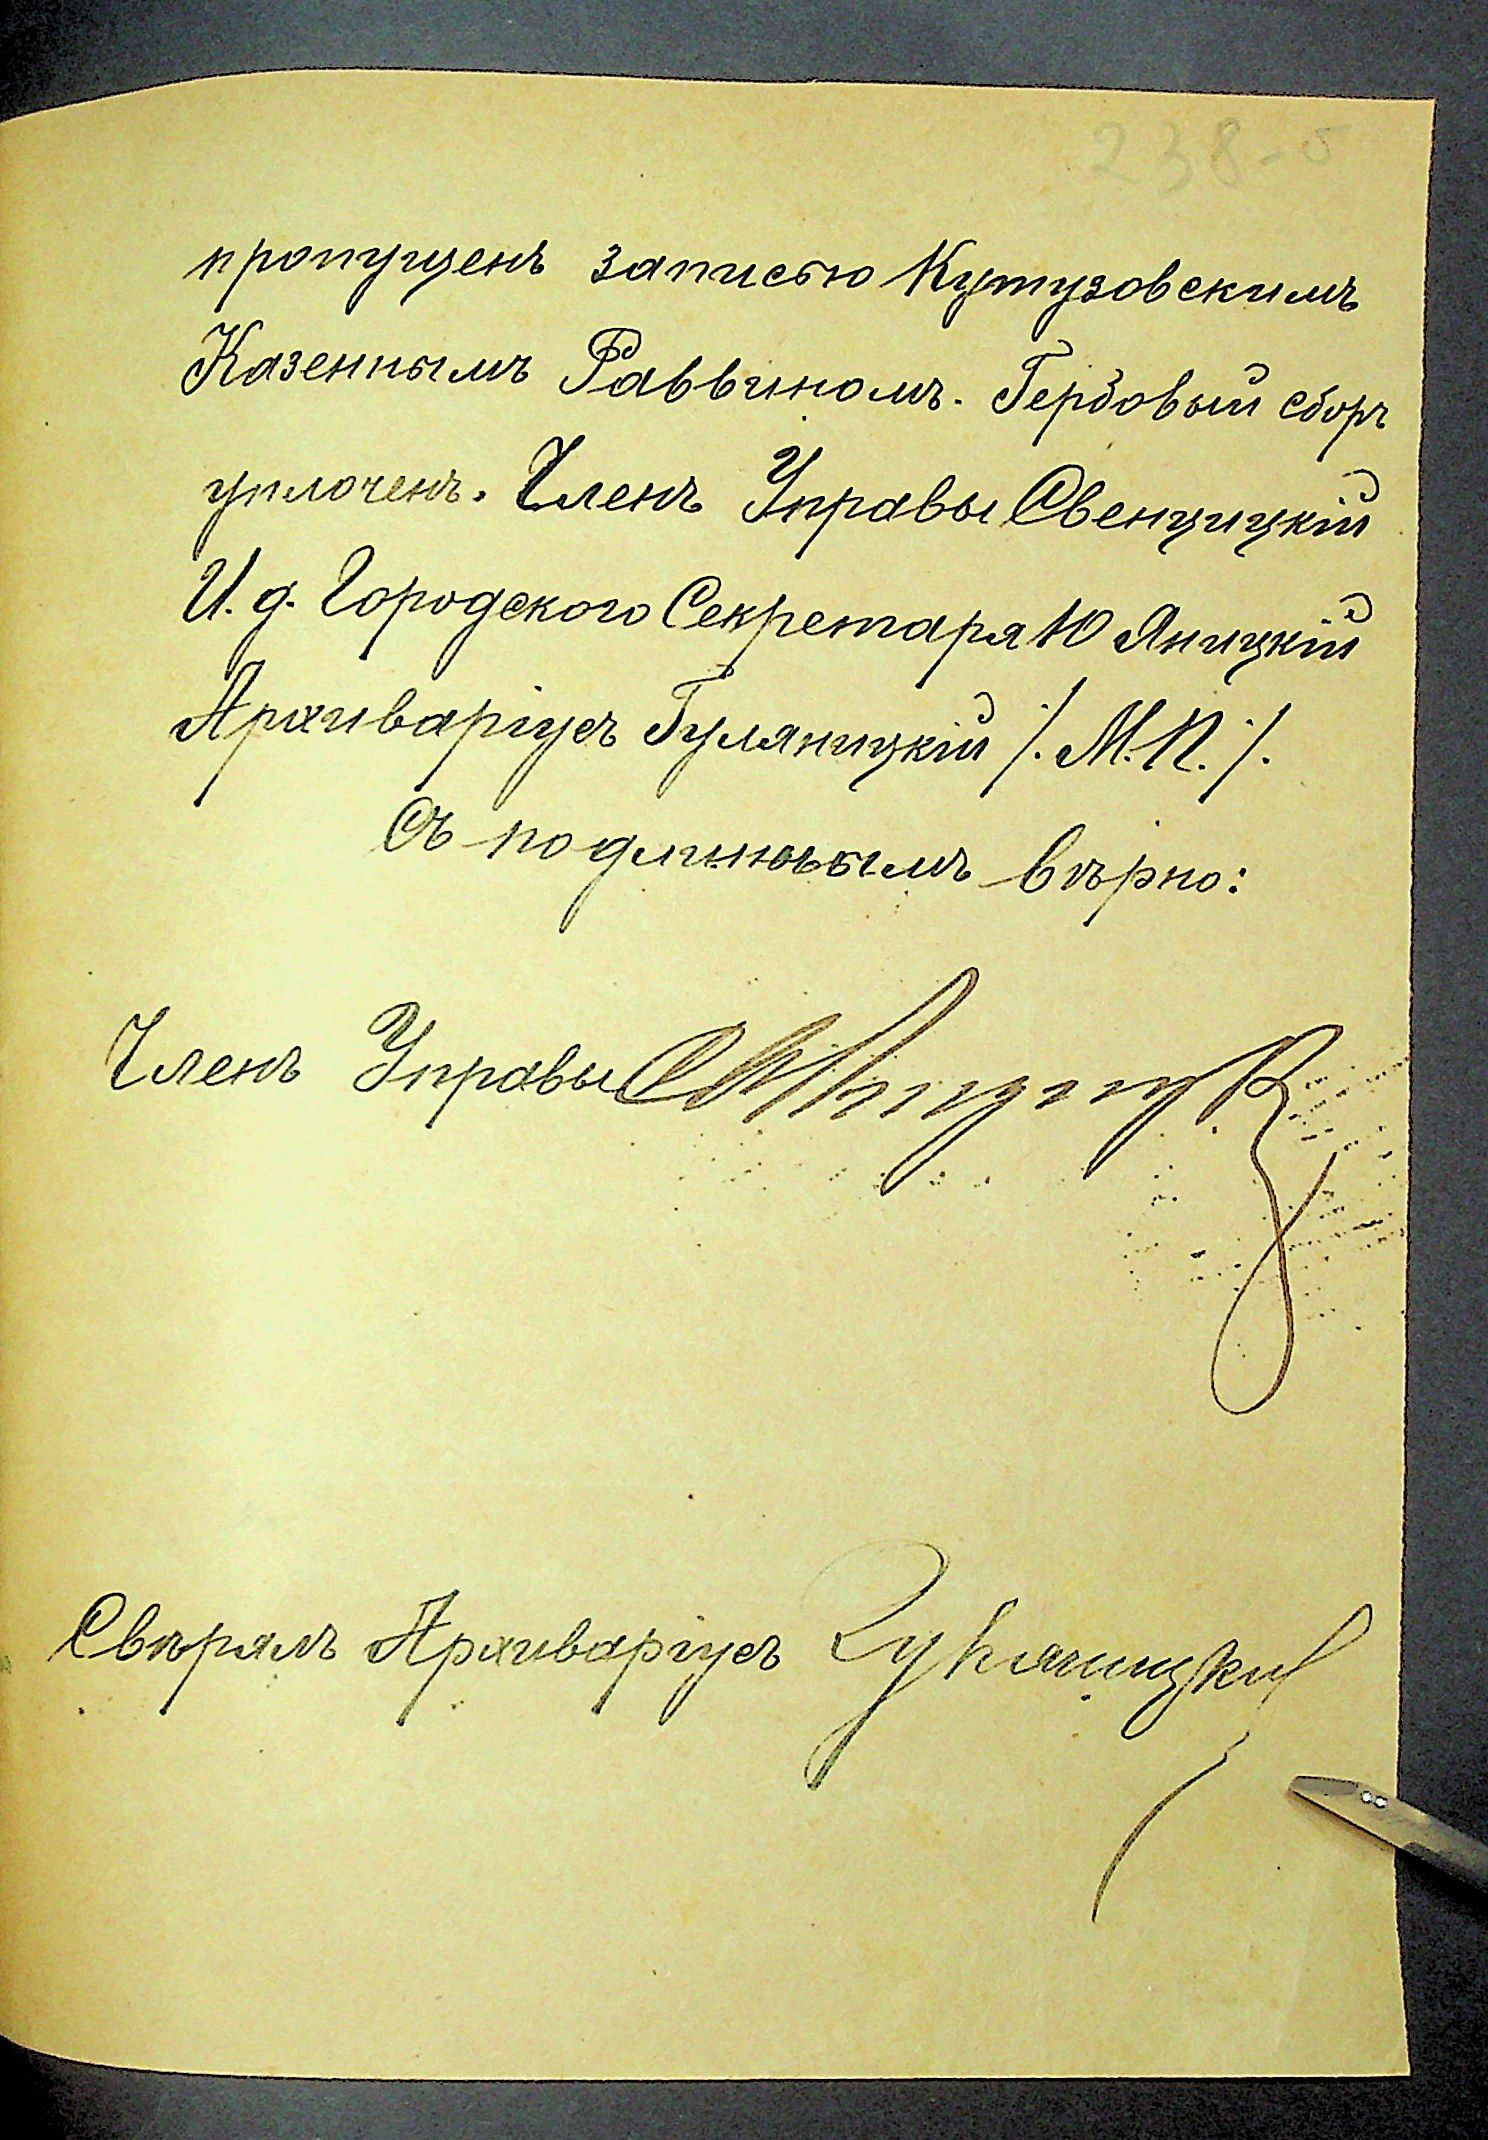 238-б
пропущенъ записью Кутузовскимъ
Казеннымъ Раввиномъ. Гербовый сборъ
уплоченъ. Членъ Управы Свенцицкій
И. д. Городского Секретаря Ю Яницкій
Архиваріусъ Гуляницкій /. М. П. /.
Съ подлиннымъ вѣрно:
Членъ Управы Свенцицкій
Свѣрялъ Архиваріусъ Гуляницкій